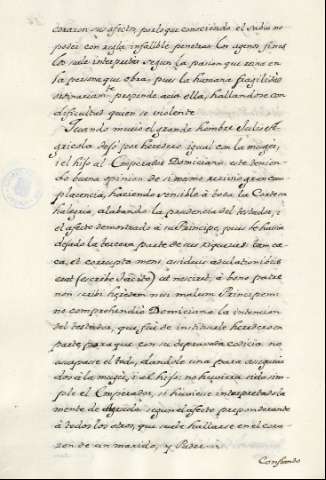 corazon su afecto, porloque consciendo el sabio no
poder con regla infalible penetrar los agenos fines
los suele interpretar segun la pasion que reina en
la persona que obra, pues la humana fragilidad
ordinariam.te propende acia ella, hallandose con
dificultad quien se violente
Quando murio el grande hombre Julio A-
gricola dejò por heredero igual con la muger,
i el hijo al Emperador Domiciano: este tenien-
do buena opinion de si mismo recivio gran com-
placencia, haciendo vensible à toda la Corte su
halegria, alabando la prudencia del testador, i
el afecto demostrado à su Principe, pues le havia
dejado la tercera parte de sus riquezas: tam cæ-
ca, et corrupta mens assiduis adulationibus
erat (escribe Tacito) ut nesciret, à bono patre
non scribi heredem nisi malum Principem:
no comprehendiò Domiciano la intencion
del testador, que fuè de instituirle heredero en
parte para que con su depravada codicia no
ocupasse el todo, dandole una para asegurar
dos à la muger, i el hijo: no huviera sido sim-
ple el Emperador, si huviese interpretado la
mente de Agricola segun el afecto preponderante
à todos los otros, que suele hallarse en el cora-
zon de un marido, y Padre
Confiando